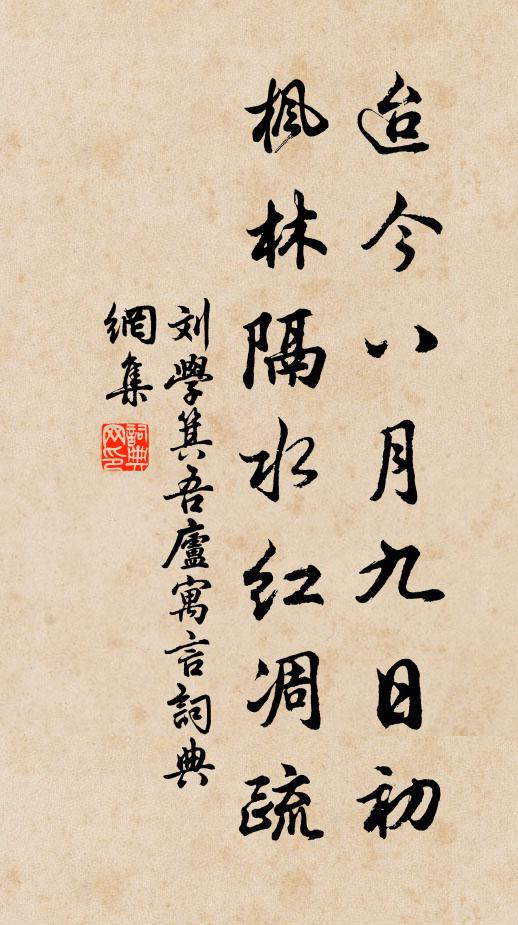 迨今八月九日初
枫林隔水红凋疏
刘學箕吾廬寓言詞典
網集
詞典網印